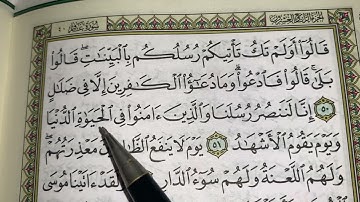 قَالُوٓا۟ أَوَلَمْ تَكُ تَأْتِيكُمْ رُسُلُكُم بِٱلْبَيِّنَٰتِ ۖ قَالُوا۟
بَلَىٰ ۚ قَالُوا۟ فَٱدْعُوا۟ ۗ وَمَا دُعَٰٓؤُا۟ ٱلْكَٰفِرِينَ إِلَّا فِى ضَلَٰلٍ
٥٠ إِنَّا لَنَنصُرُ رُسُلَنَا وَٱلَّذِينَ ءَامَنُوا۟ فِى ٱلْحَيَوٰةِ ٱلدُّنْيَا
وَيَوْمَ يَقُومُ ٱلْأَشْهَٰدُ ٥١ يَوْمَ لَا يَنفَعُ مَعْذِرَتُهُمْ ۖ
وَلَهُمُ ٱللَّعْنَةُ وَلَهُمْ سُوٓءُ ٱلدَّارِ ءَاتَيْنَا مُوسَى